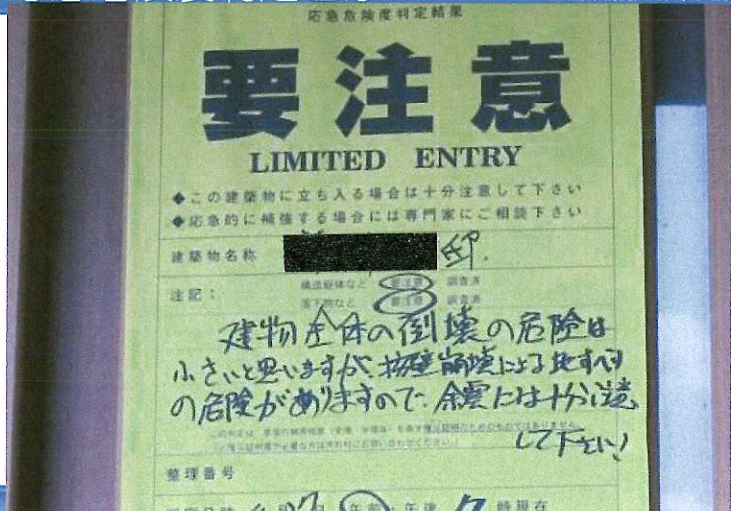 応急危険度判定結果
要注意
LIMITED ENTRY
◆この建築物に立ち入る場合は十分注意して下さい
◆応急的に補強する場合には専門家にご相談下さい
建築物名称 邸.
注記： 構造躯体など 要注意 調査済
落下物など 要注意 調査済
建物全体の倒壊の危険は
小さいと思いますが、擁壁崩壊による地すべり
の危険がありますので、余震には十分注意
して下さい!
整理番号
午前・午後 時現在